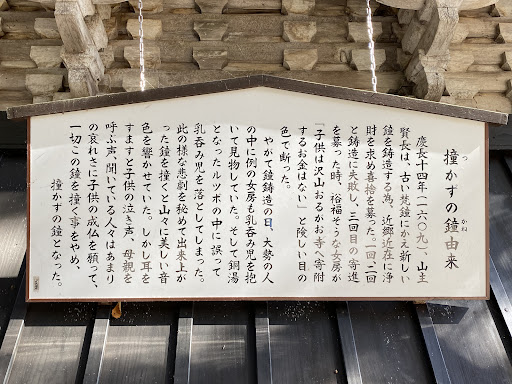 撞かずの鐘由来
つ
かね
慶長十四年(一六〇九)、山主
賢長は、古い梵鐘にかえ新しい
鐘を鋳造する為、近郷近在に浄
財を求め喜捨を募った。一回、二回
と鋳造に失敗し、三回目の寄進
を募った時、裕福そうな女房が
「子供は沢山おるがお寺へ寄附
するお金はない」と険しい目の
色で断った。
やがて鐘鋳造の日、大勢の人
の中に例の女房も乳呑み児を抱
いて見物していた。そして銅湯
となったルツボの中に誤って
乳呑み児を落としてしまった。
此の様な悲劇を秘めて出来上が
った鐘を撞くと山々に美しい音
色を響かせていた。しかし耳を
すますと子供の泣き声、母親を
呼ぶ声、聞いている人々はあまり
の哀れさに子供の成仏を願って、
一切この鐘を撞く事をやめ、
撞かずの鐘となった。